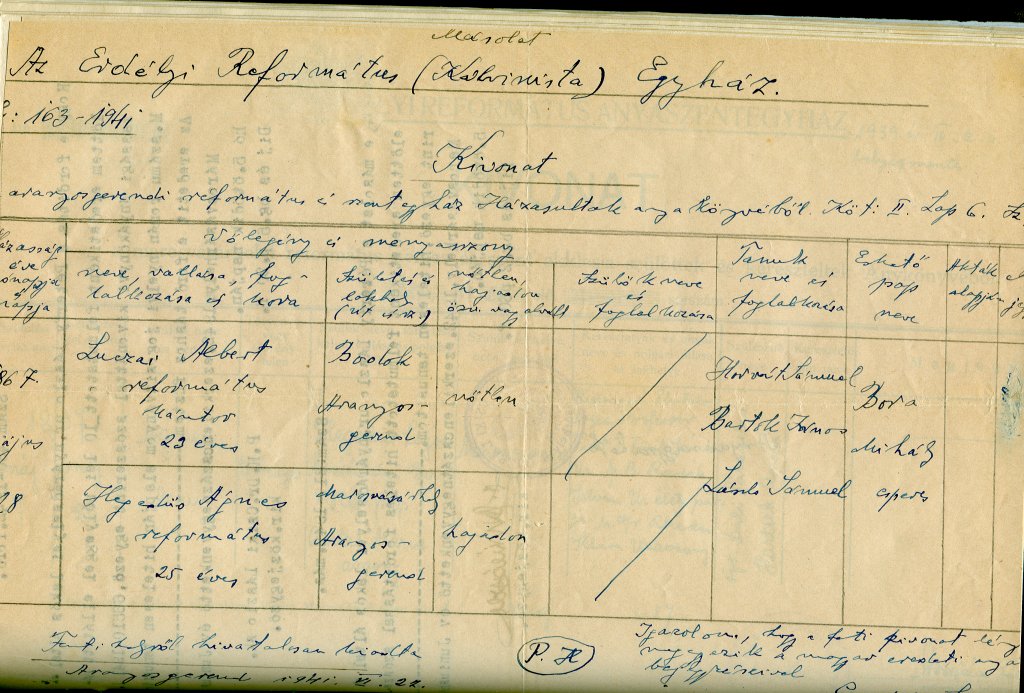 Másolat
Az Erdélyi Református (Kálvinista) Egyház.
163-1941
Kivonat
aranyosgerendi református és egyház Házasultak anyakönyvéből. Köt: II. Lap 6.
Házasság
éve
hónapja
napja
Vőlegény és menyasszony
neve, vallása, fog-
lalkozása és kora
Születés és
lakhely
nőtlen,
hajadon
özv. vagy elvált
Szülők neve
és
foglalkozása
Tanuk
neve és
foglalkozása
Eskető
pap
neve
Akták
alapján
867.
május
28
Luczai Albert
református
kántor
23 éves
Bodok
Aranyos-
gerend
nőtlen
Horváth Sámuel
Bartók János
László Sámuel
Bora
Mihály
esperes
Hegedüs Ágnes
református
25 éves
Marosvásárhely
Aranyos-
gerend
hajadon
Fenti hivatalosan kiadta
Aranyosgerend 1941. VI. 22.
P. H
Igazolom, hogy a fenti kivonat
megegyezik a magyar eredeti
bejegyzéseivel